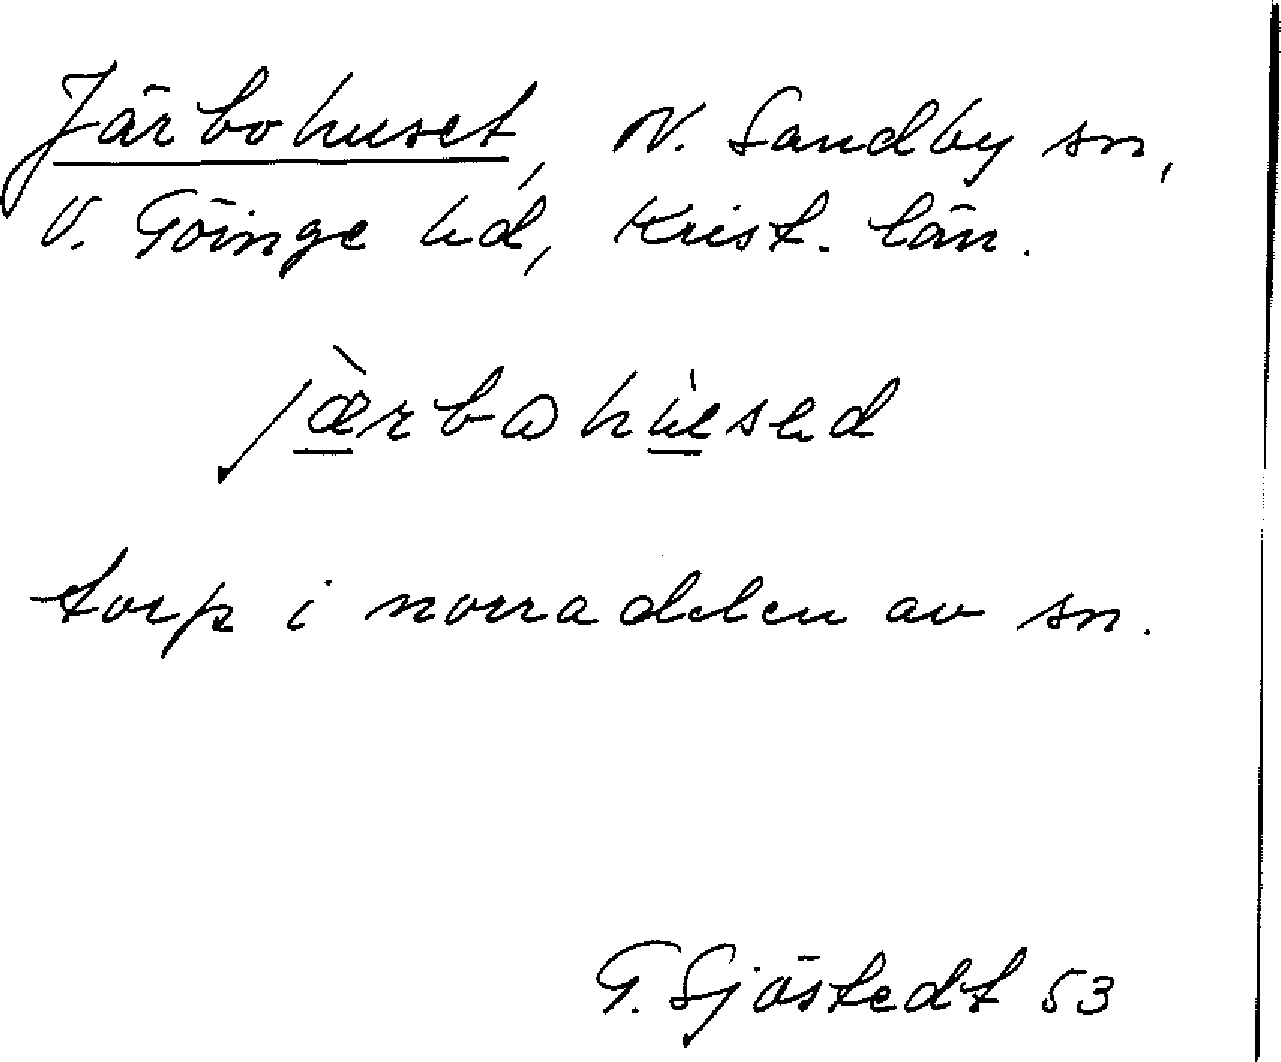 Järbohuset, N. Sandby sn,
V. Göinge hd, Krist. län.
jæ̀rbohùsed
torp i norra delen av sn.
G. Sjöstedt 53